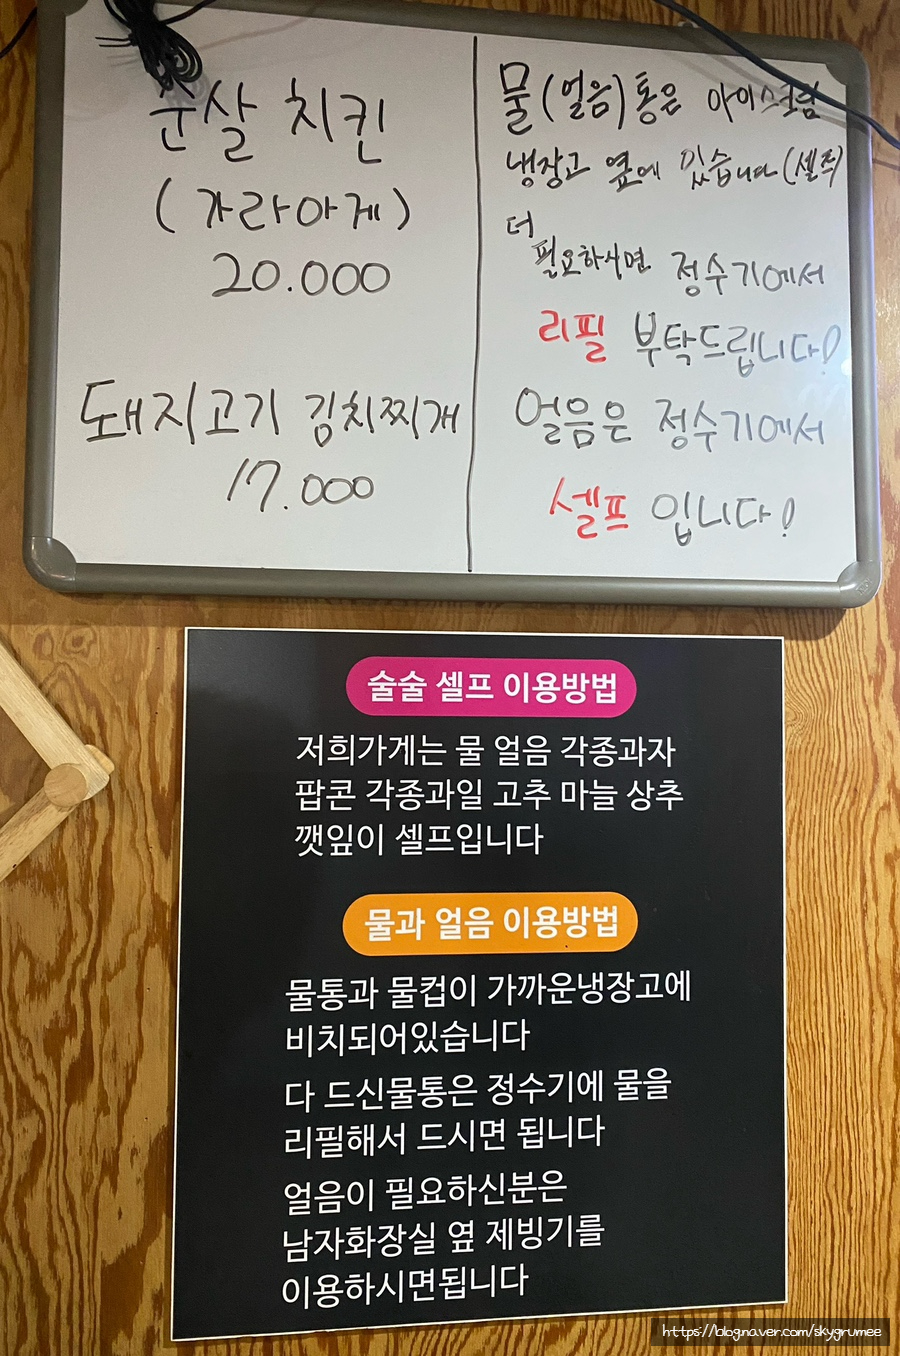 순살 치킨
(가라아게)
20.000
돼지고기 김치찌개
17.000
물(얼음)통은 아이스크림
냉장고 옆에 있습니다(셀프)
더
필요하시면 정수기에서
리필 부탁드립니다!
얼음은 정수기에서
셀프 입니다!
술술 셀프 이용방법
저희가게는 물 얼음 각종과자
팝콘 각종과일 고추 마늘 상추
깻잎이 셀프입니다
물과 얼음 이용방법
물통과 물컵이 가까운냉장고에
비치되어있습니다
다 드신물통은 정수기에 물을
리필해서 드시면 됩니다
얼음이 필요하신분은
남자화장실 옆 제빙기를
이용하시면됩니다
https://blog.naver.com/skygrumee